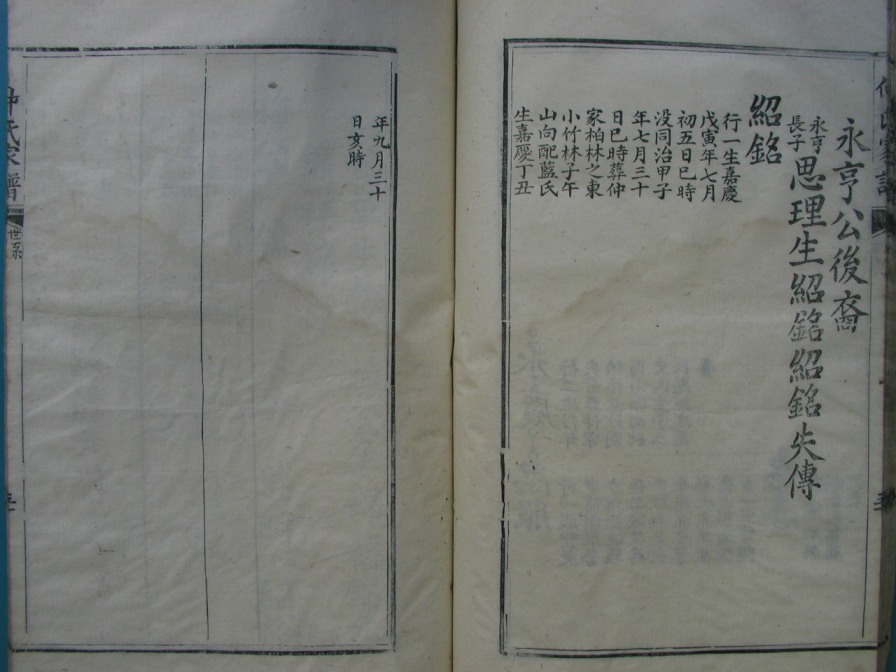 永亨公後裔
永亨長子思理生紹銘紹銘失傳
紹銘
行一生嘉慶
戊寅年七月
初五日巳時
没同治甲子
年七月三十
日巳時葬仲
家柏林之東
小竹林子午
山向配藍氏
生嘉慶丁丑
年九月三十
日亥時
氏家譜
世系